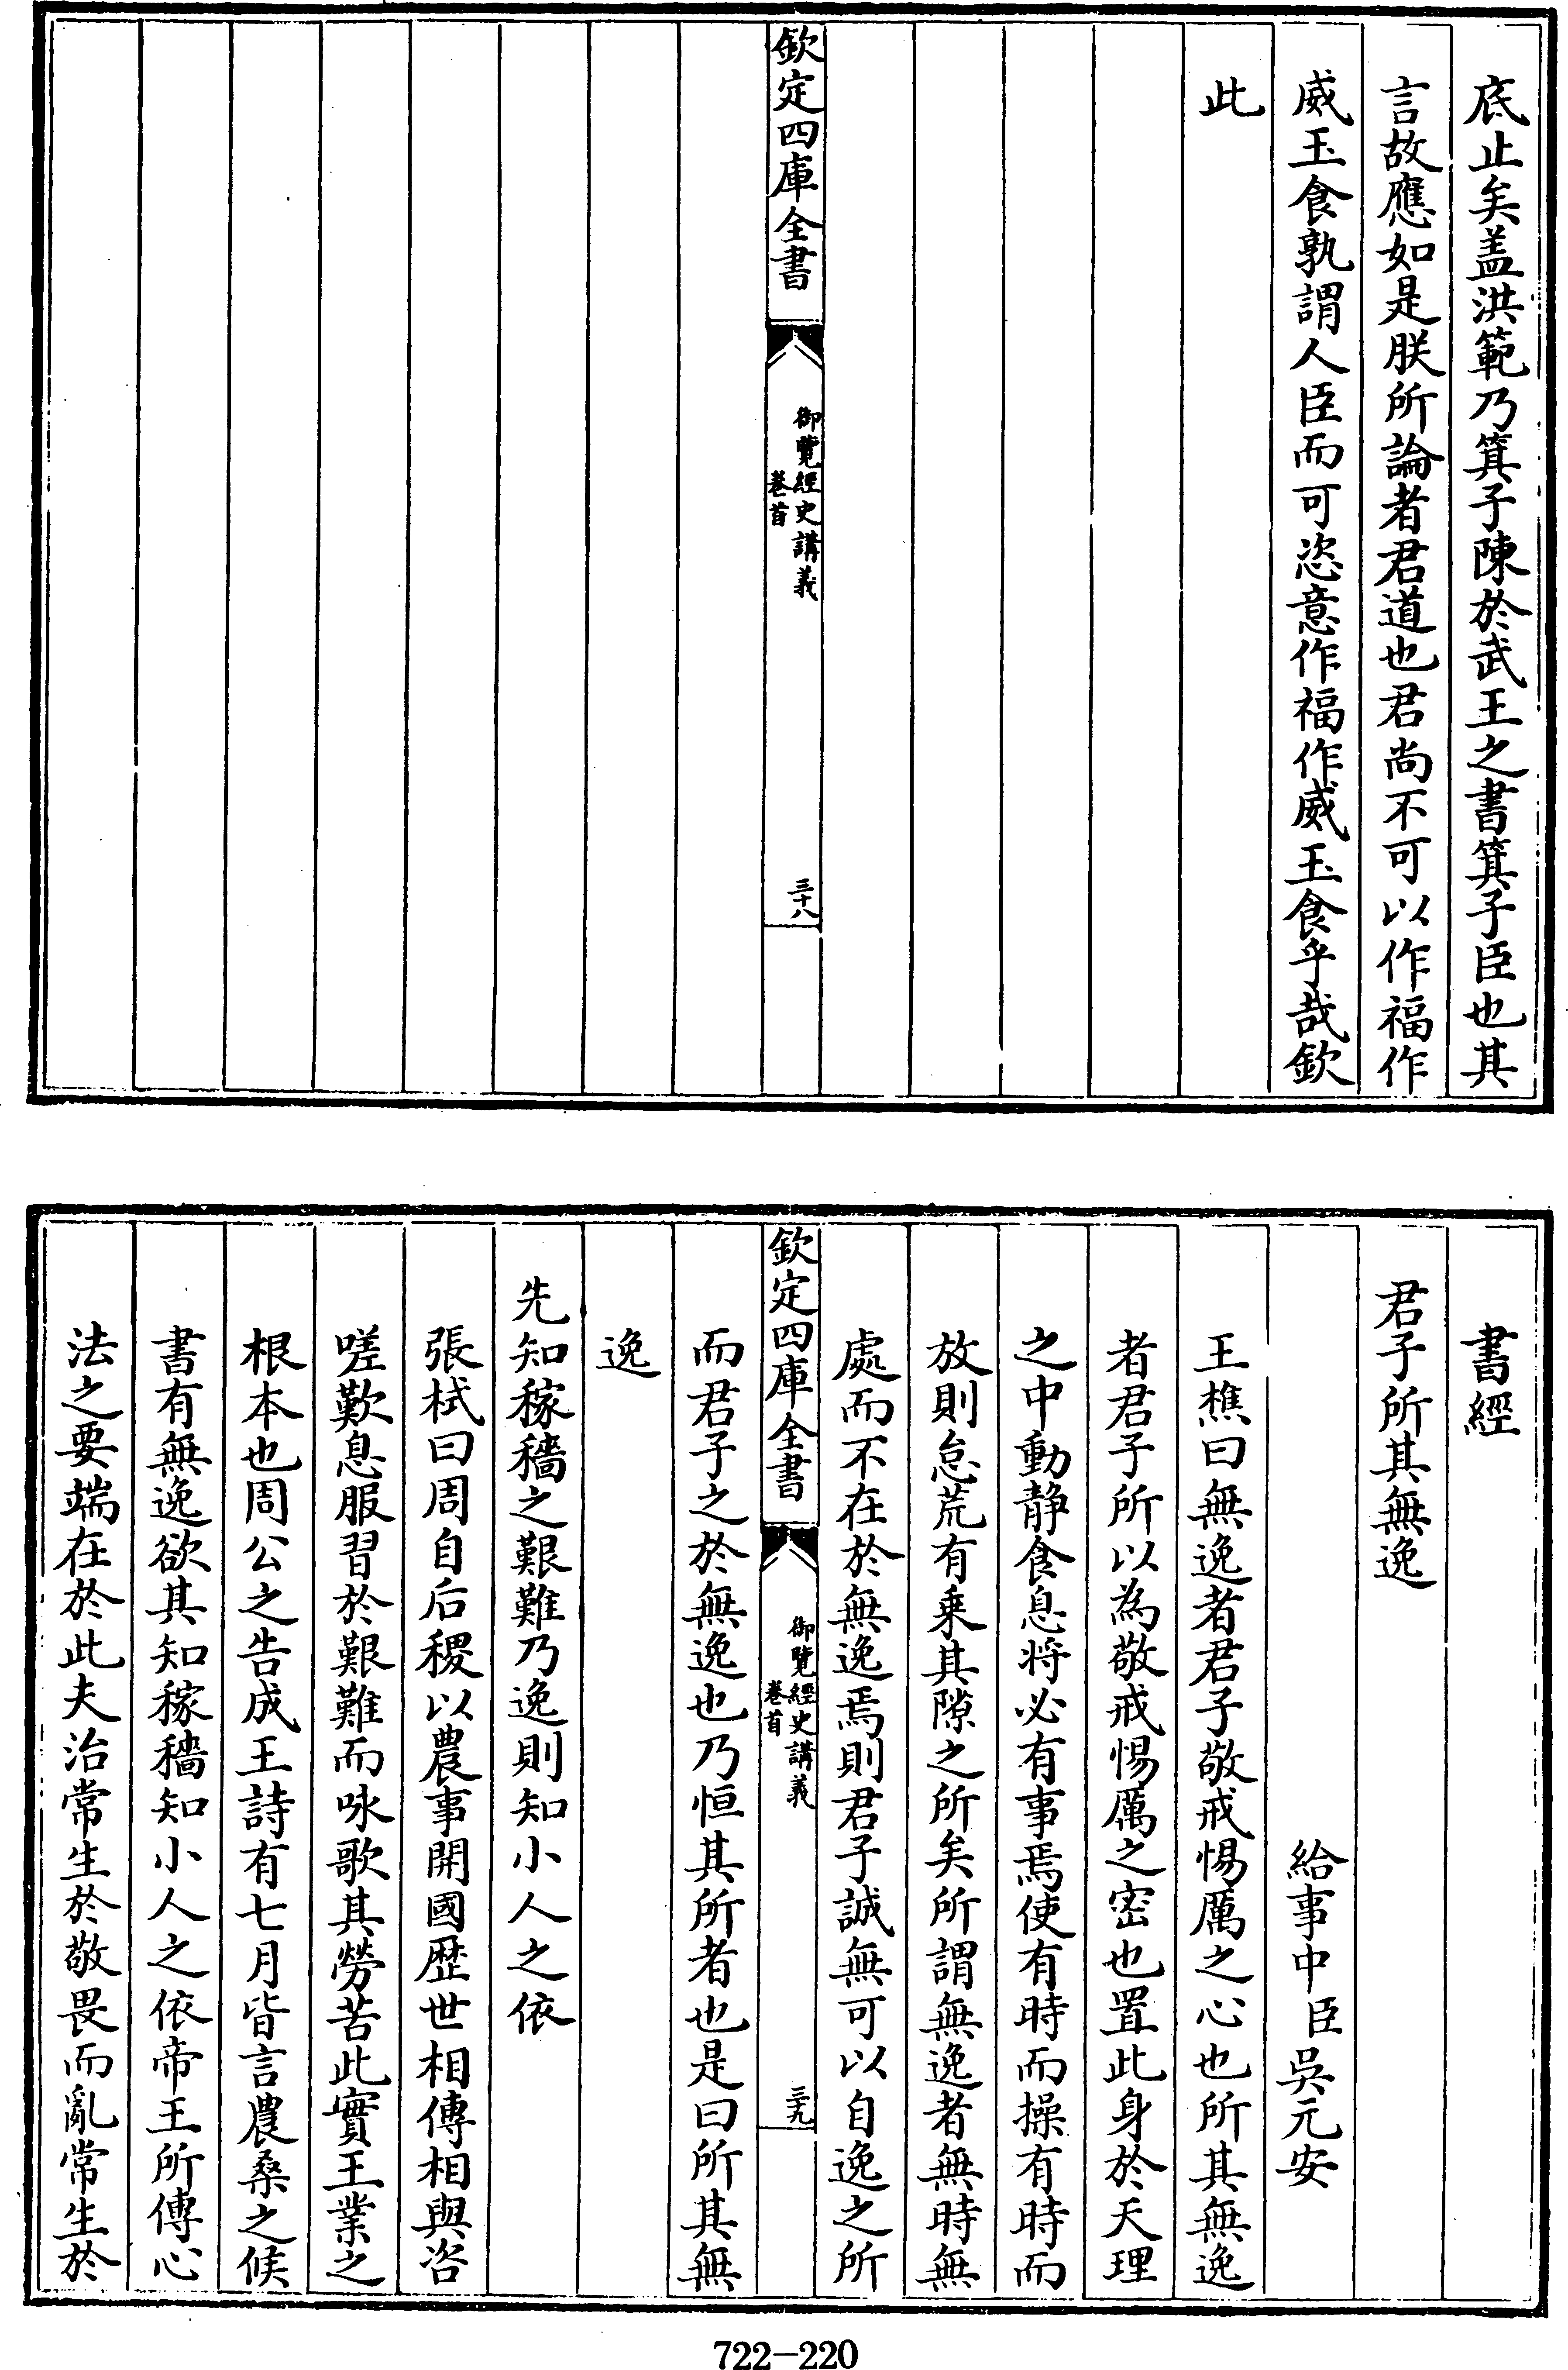 底止矣盖洪範乃箕子陳於武王之書箕子臣也其
言故應如是朕所論者君道也君尚不可以作福作
威玉食孰謂人臣而可恣意作福作威玉食乎哉欽
此
欽定四庫全書
御覽經史講義
卷首
三十八
書經
君子所其無逸
給事中臣吳元安
王樵曰無逸者君子敬戒惕厲之心也所其無逸
者君子所以為敬戒惕厲之密也置此身於天理
之中動静食息将必有事焉使有時而操有時而
放則怠荒有乗其隙之所矣所謂無逸者無時無
處而不在於無逸焉則君子誠無可以自逸之所
欽定四庫全書
御覽經史講義
卷首
三十九
而君子之於無逸也乃恒其所者也是曰所其無
逸
先知稼穡之艱難乃逸則知小人之依
張栻曰周自后稷以農事開國歴世相傳相與咨
嗟歎息服習於艱難而咏歌其勞苦此實王業之
根本也周公之告成王詩有七月皆言農桑之候
書有無逸欲其知稼穡知小人之依帝王所傳心
法之要端在於此夫治常生於敬畏而亂常生於
722-220